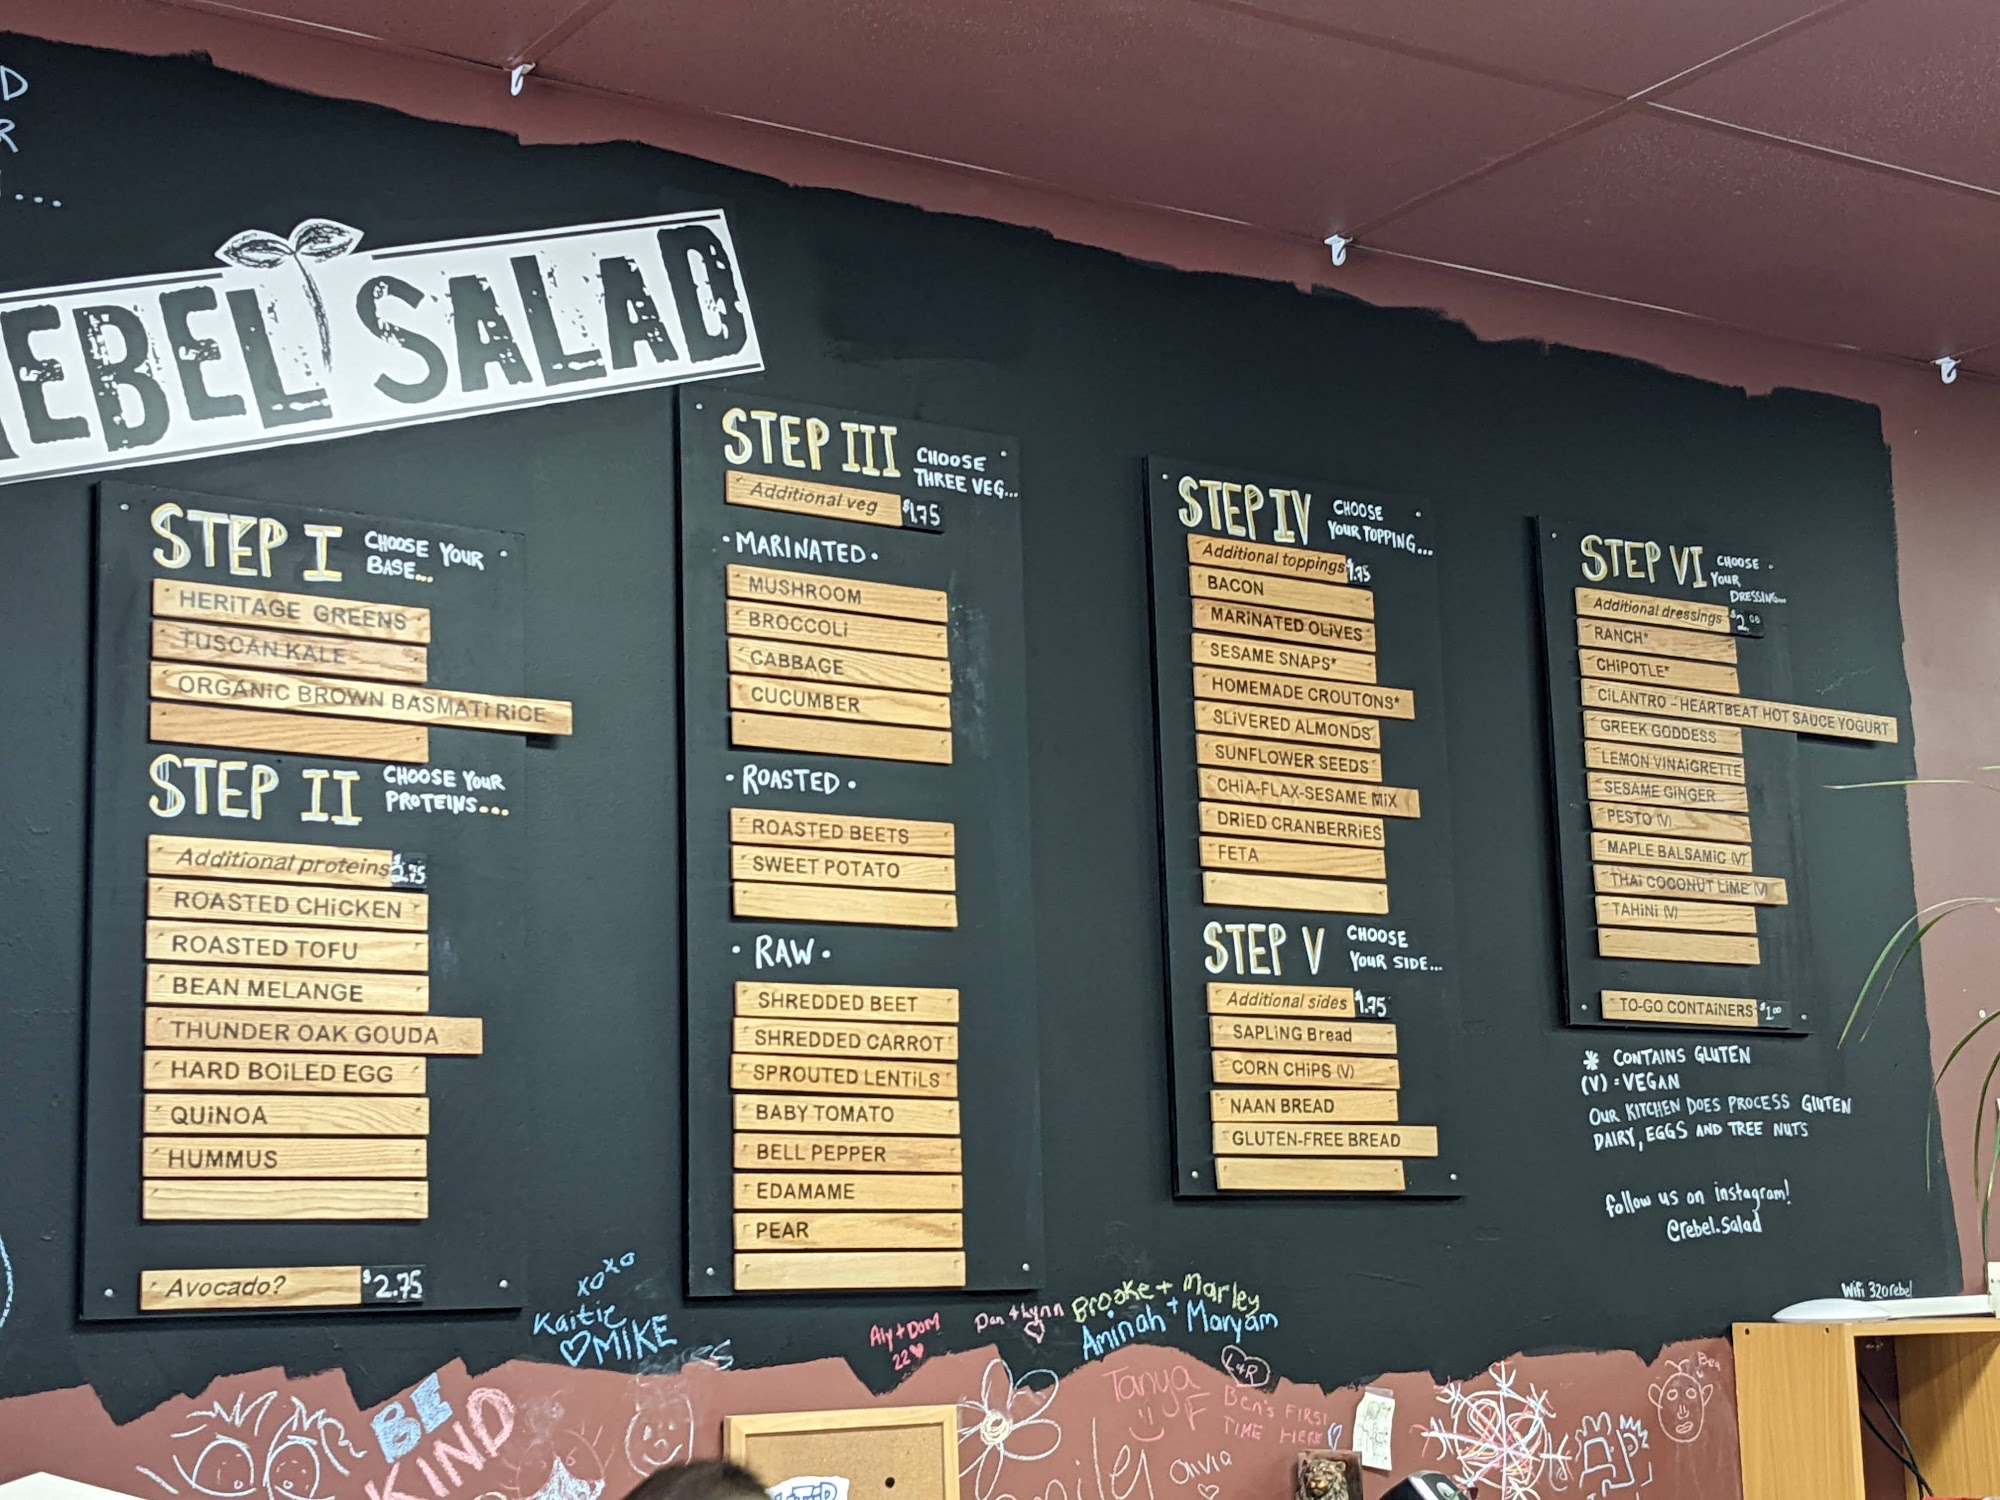 D
R
...
REBEL SALAD
STEP I CHOOSE YOUR
BASE...
HERITAGE GREENS
TUSCAN KALE
ORGANIC BROWN BASMATI RICE
STEP II CHOOSE YOUR
PROTEINS...
Additional proteins $2.75
ROASTED CHICKEN
ROASTED TOFU
BEAN MELANGE
THUNDER OAK GOUDA
HARD BOILED EGG
QUINOA
HUMMUS
Avocado? $2.75
STEP III CHOOSE
THREE VEG...
Additional veg $1.75
• MARINATED •
MUSHROOM
BROCCOLI
CABBAGE
CUCUMBER
• ROASTED •
ROASTED BEETS
SWEET POTATO
• RAW •
SHREDDED BEET
SHREDDED CARROT
SPROUTED LENTILS
BABY TOMATO
BELL PEPPER
EDAMAME
PEAR
STEP IV CHOOSE
YOUR TOPPING...
Additional toppings $1.75
BACON
MARINATED OLIVES
SESAME SNAPS*
HOMEMADE CROUTONS*
SLIVERED ALMONDS
SUNFLOWER SEEDS
CHIA-FLAX-SESAME MIX
DRIED CRANBERRIES
FETA
STEP V CHOOSE
YOUR SIDE...
Additional sides $1.75
SAPLING Bread
CORN CHIPS (V)
NAAN BREAD
GLUTEN-FREE BREAD
STEP VI CHOOSE
YOUR
DRESSING...
Additional dressings $2.00
RANCH*
CHIPOTLE*
CILANTRO - HEARTBEAT HOT SAUCE YOGURT
GREEK GODDESS
LEMON VINAIGRETTE
SESAME GINGER
PESTO (V)
MAPLE BALSAMIC (V)
THAI COCONUT LIME (V)
TAHINI (V)
TO-GO CONTAINERS $1.00
* CONTAINS GLUTEN
(V) = VEGAN
OUR KITCHEN DOES PROCESS GLUTEN
DAIRY, EGGS AND TREE NUTS
follow us on instagram!
@rebel.salad
Wifi 320rebel
XOXO
Kaitie
♡MIKE
Aly + Dom
22
Dan + Lynn
Brooke + Marley
Aminah + Maryam
L+R
Tanya
BE
KIND
Ben's FIRST
TIME HERE
Olivia
Ben